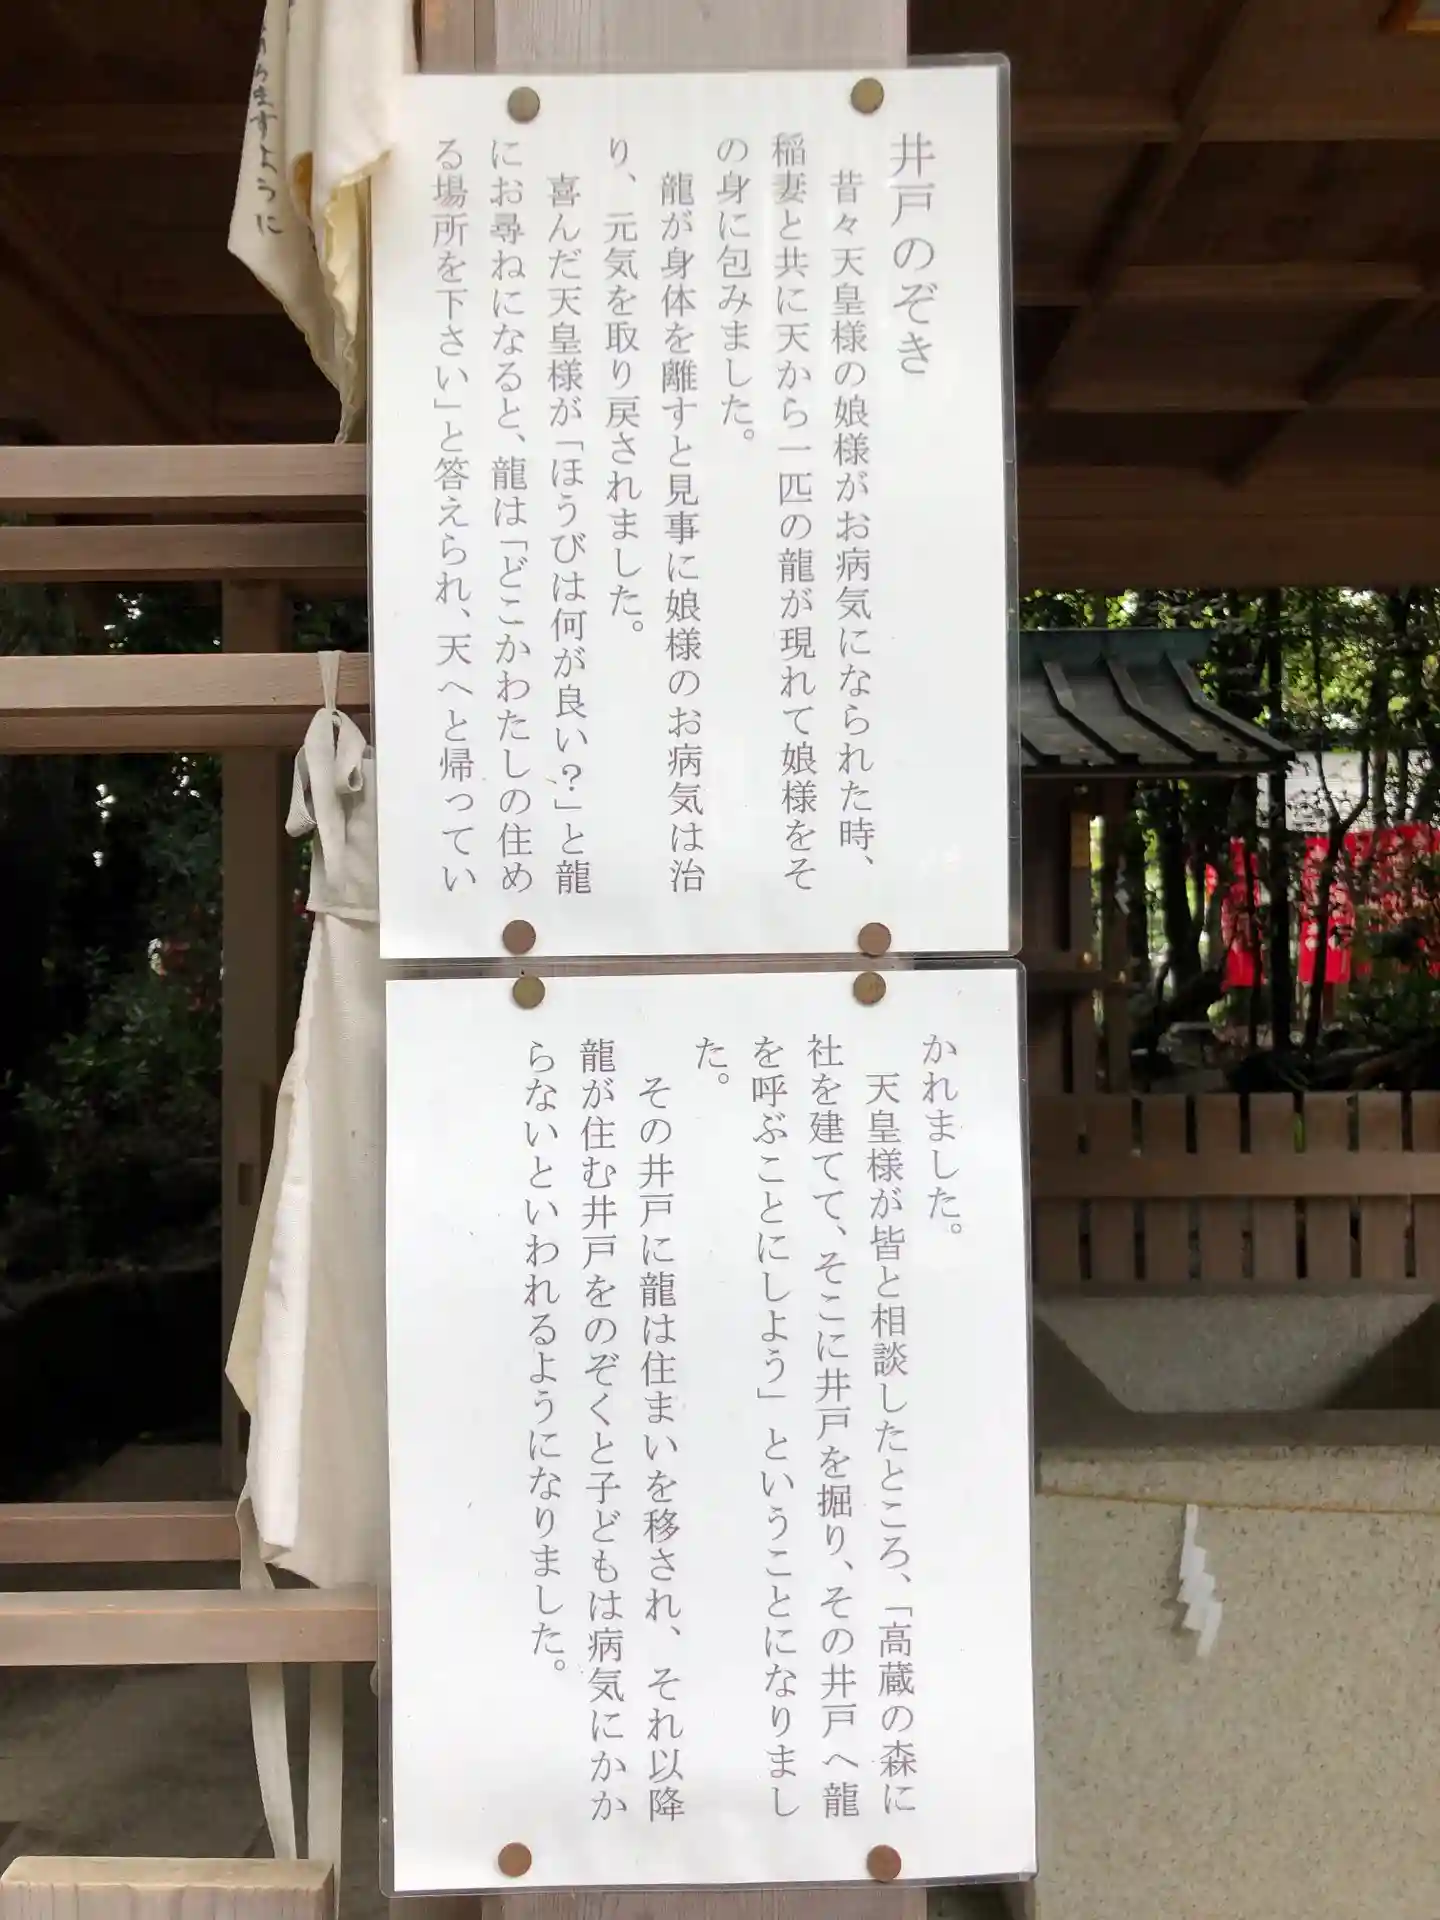 井戸のぞき
昔々天皇様の娘様がお病気になられた時、
稲妻と共に天から一匹の龍が現れて娘様をそ
の身に包みました。
龍が身体を離すと見事に娘様のお病気は治
り、元気を取り戻されました。
喜んだ天皇様が「ほうびは何が良い？」と龍
にお尋ねになると、龍は「どこかわたしの住め
る場所を下さい」と答えられ、天へと帰ってい
かれました。
天皇様が皆と相談したところ、「高蔵の森に
社を建てて、そこに井戸を掘り、その井戸へ龍
を呼ぶことにしよう」ということになりまし
た。
その井戸に龍は住まいを移され、それ以降
龍が住む井戸をのぞくと子どもは病気にかか
らないといわれるようになりました。
りますように